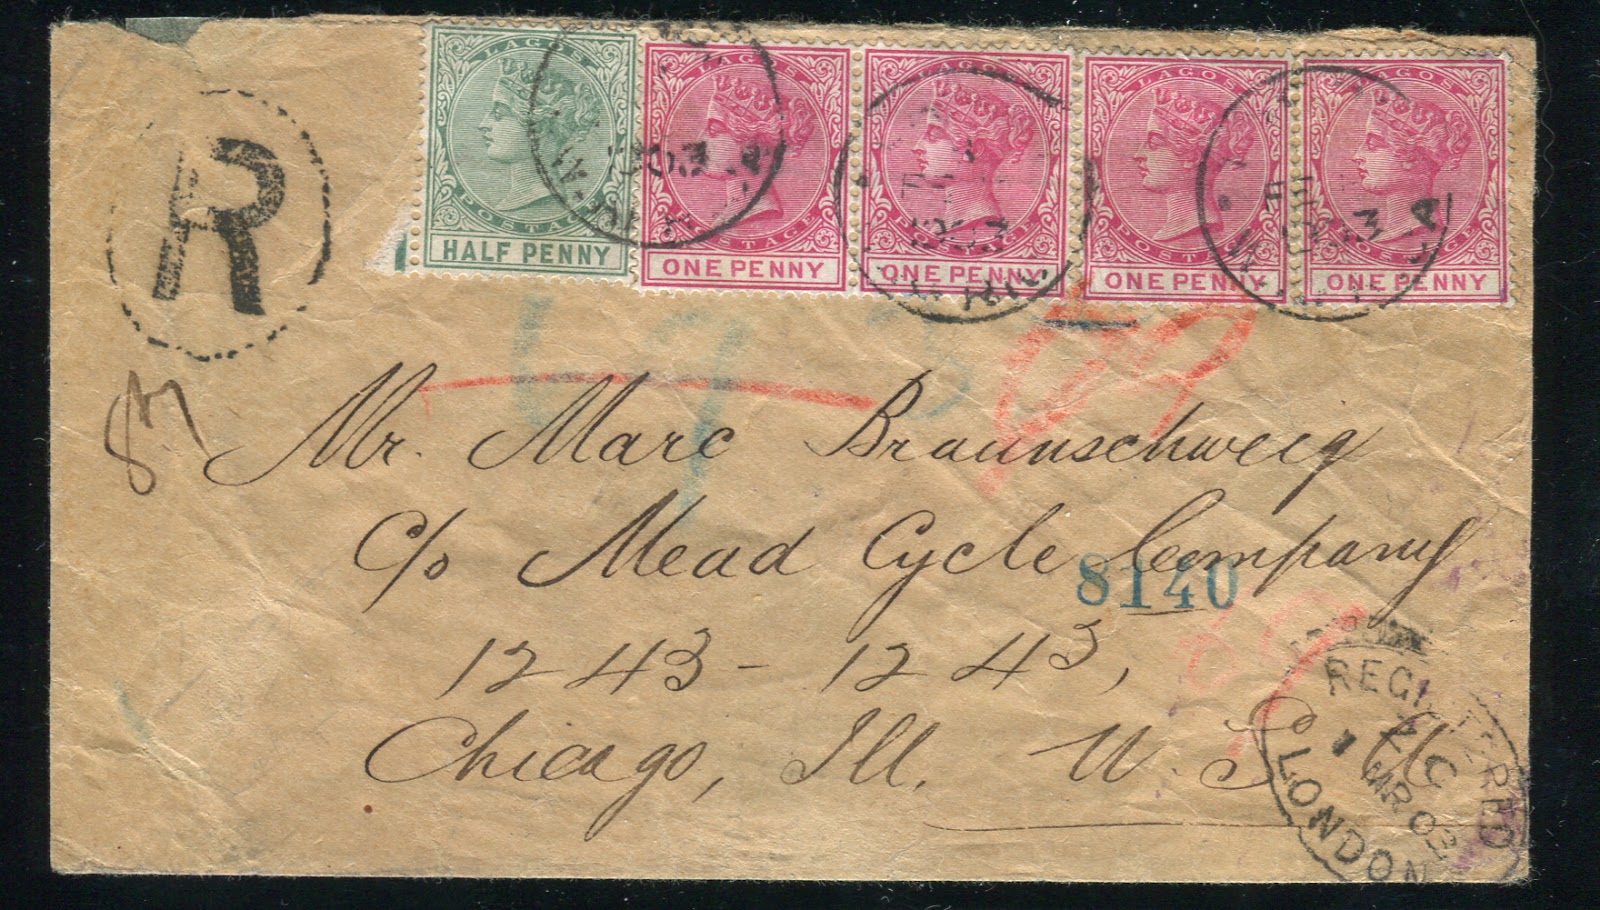 LAGOS POSTAGE HALF PENNY
LAGOS POSTAGE ONE PENNY
LAGOS POSTAGE ONE PENNY
LAGOS POSTAGE ONE PENNY
LAGOS POSTAGE ONE PENNY
R
87
Mr. Marc Braunschweig
C/o Mead Cycle Company
8140
1243 - 1243,
Chicago, Ill. U.S.
REGISTERED
MR 02
LONDON